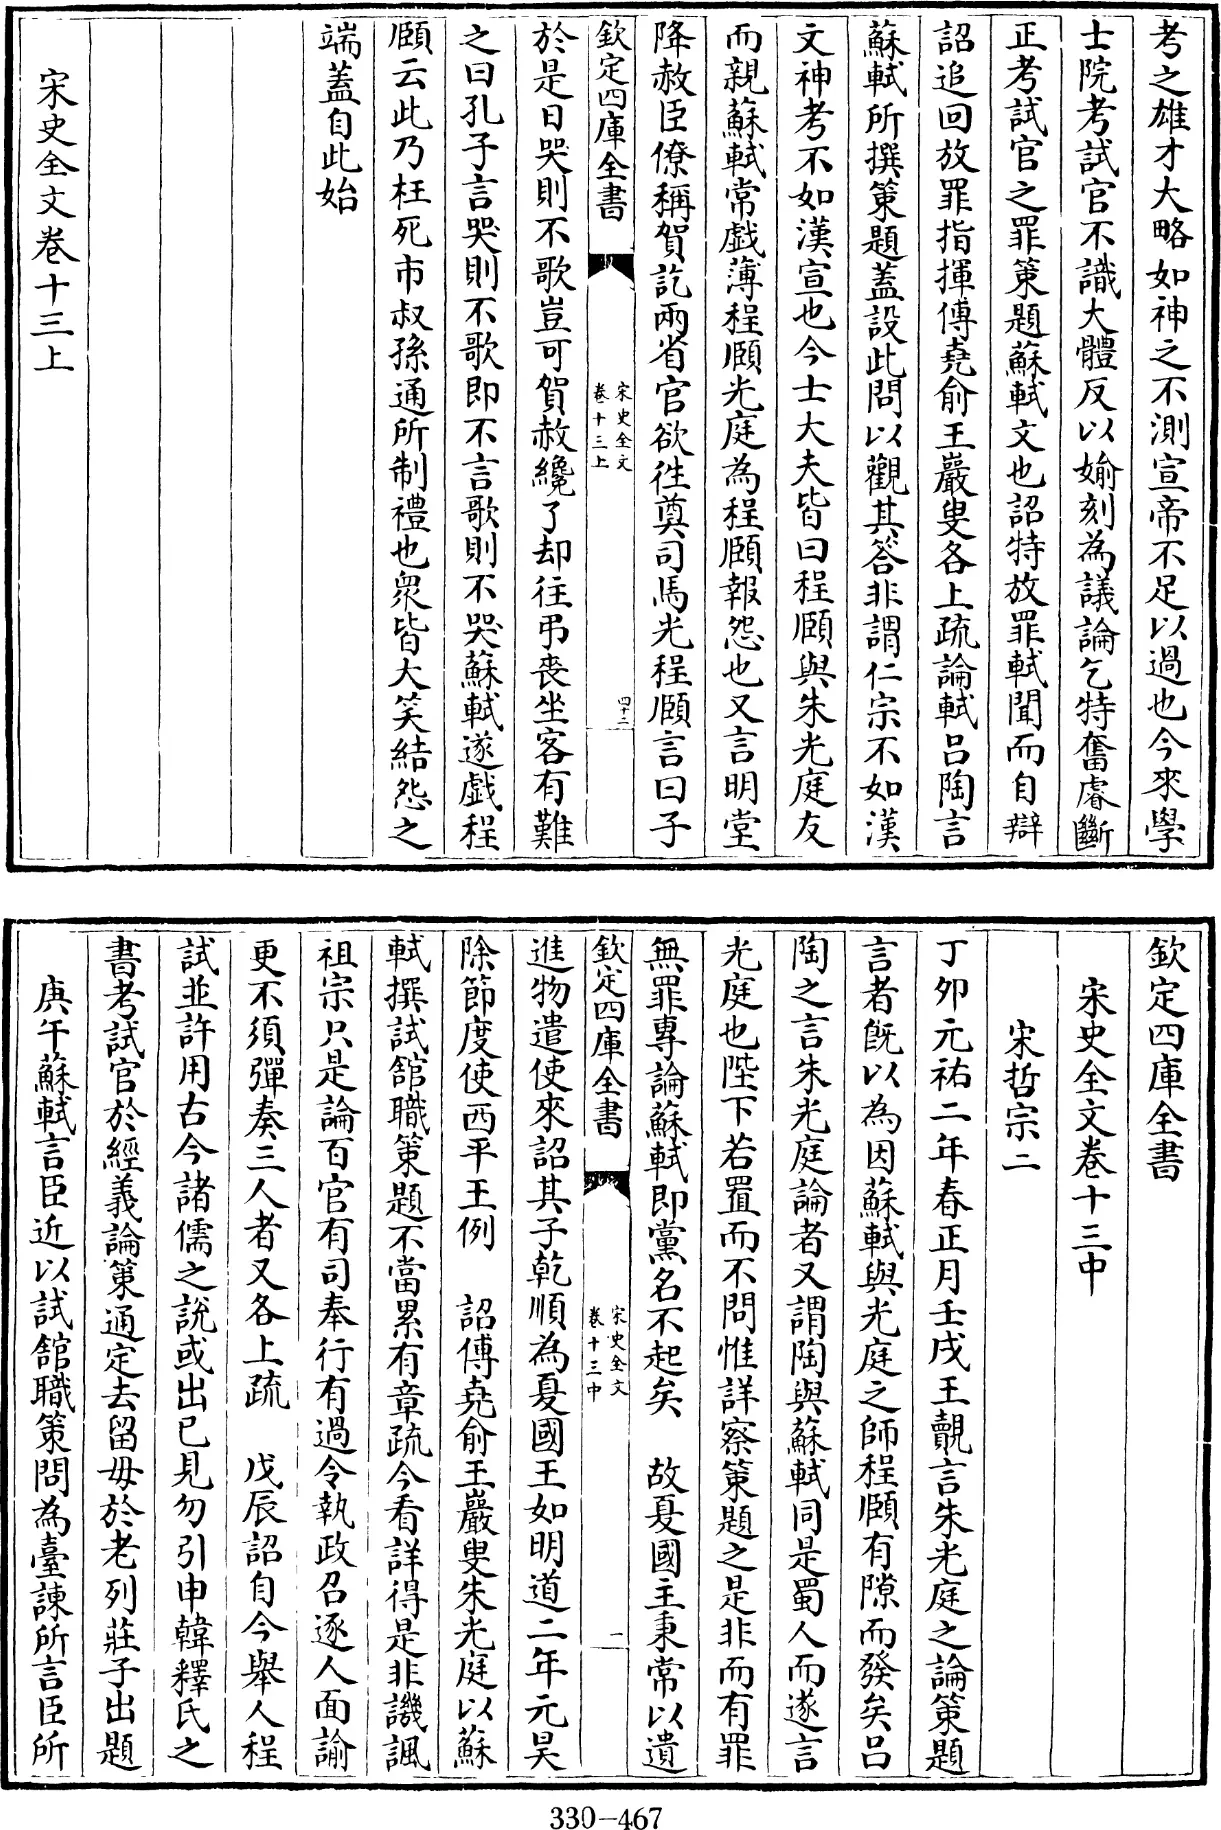 考之雄才大略如神之不測宣帝不足以過也今來學
士院考試官不識大體反以媮刻為議論乞特奮睿斷
正考試官之罪策題蘇軾文也詔特放罪軾聞而自辯
詔追回放罪指揮傅堯俞王巖叟各上疏論軾呂陶言
蘇軾所撰策題蓋設此問以觀其答非謂仁宗不如漢
文神考不如漢宣也今士大夫皆曰程頤與朱光庭友
而親蘇軾常戲薄程頤光庭為程頤報怨也又言明堂
降赦臣僚稱賀訖兩省官欲往奠司馬光程頤言曰子
欽定四庫全書
宋史全文
卷十三上
四十二
於是日哭則不歌豈可賀赦纔了却往弔喪坐客有難
之曰孔子言哭則不歌即不言歌則不哭蘇軾遂戲程
頤云此乃枉死市叔孫通所制禮也衆皆大笑結怨之
端蓋自此始
宋史全文卷十三上
欽定四庫全書
宋史全文卷十三中
宋哲宗二
丁卯元祐二年春正月壬戌王覿言朱光庭之論策題
言者既以為因蘇軾與光庭之師程頤有隙而發矣呂
陶之言朱光庭論者又謂陶與蘇軾同是蜀人而遂言
光庭也陛下若置而不問惟詳察策題之是非而有罪
無罪專論蘇軾即黨名不起矣　故夏國主秉常以遺
欽定四庫全書
宋史全文
卷十三中
一
進物遣使來詔其子乾順為夏國王如明道二年元昊
除節度使西平王例　詔傅堯俞王巖叟朱光庭以蘇
軾撰試館職策題不當累有章疏今看詳得是非譏諷
祖宗只是論百官有司奉行有過令執政召逐人面諭
更不須彈奏三人者又各上疏　戊辰詔自今舉人程
試並許用古今諸儒之說或出已見勿引申韓釋氏之
書考試官於經義論策通定去留毋於老列莊子出題
庚午蘇軾言臣近以試館職策問為臺諫所言臣所
330-467